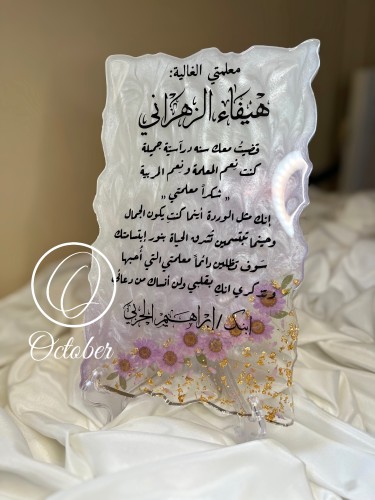 معلمتي الغالية:
هيفاء الزهراني
قضيتُ معك سنه دراسية جميلة
كنت نعم المعلمة ونعم المربية
"شكراً معلمتي"
إنك مثل الوردة أينما كنت يكون الجمال
وحينما تبتسمين تشرق الحياة بنور إبتسامتك
سوف تظلين دائماً معلمتي التي أحبها
وتذكري انك بقلبي ولن أنساك من دعائي
ابنك / ابراهيم الحربي
October